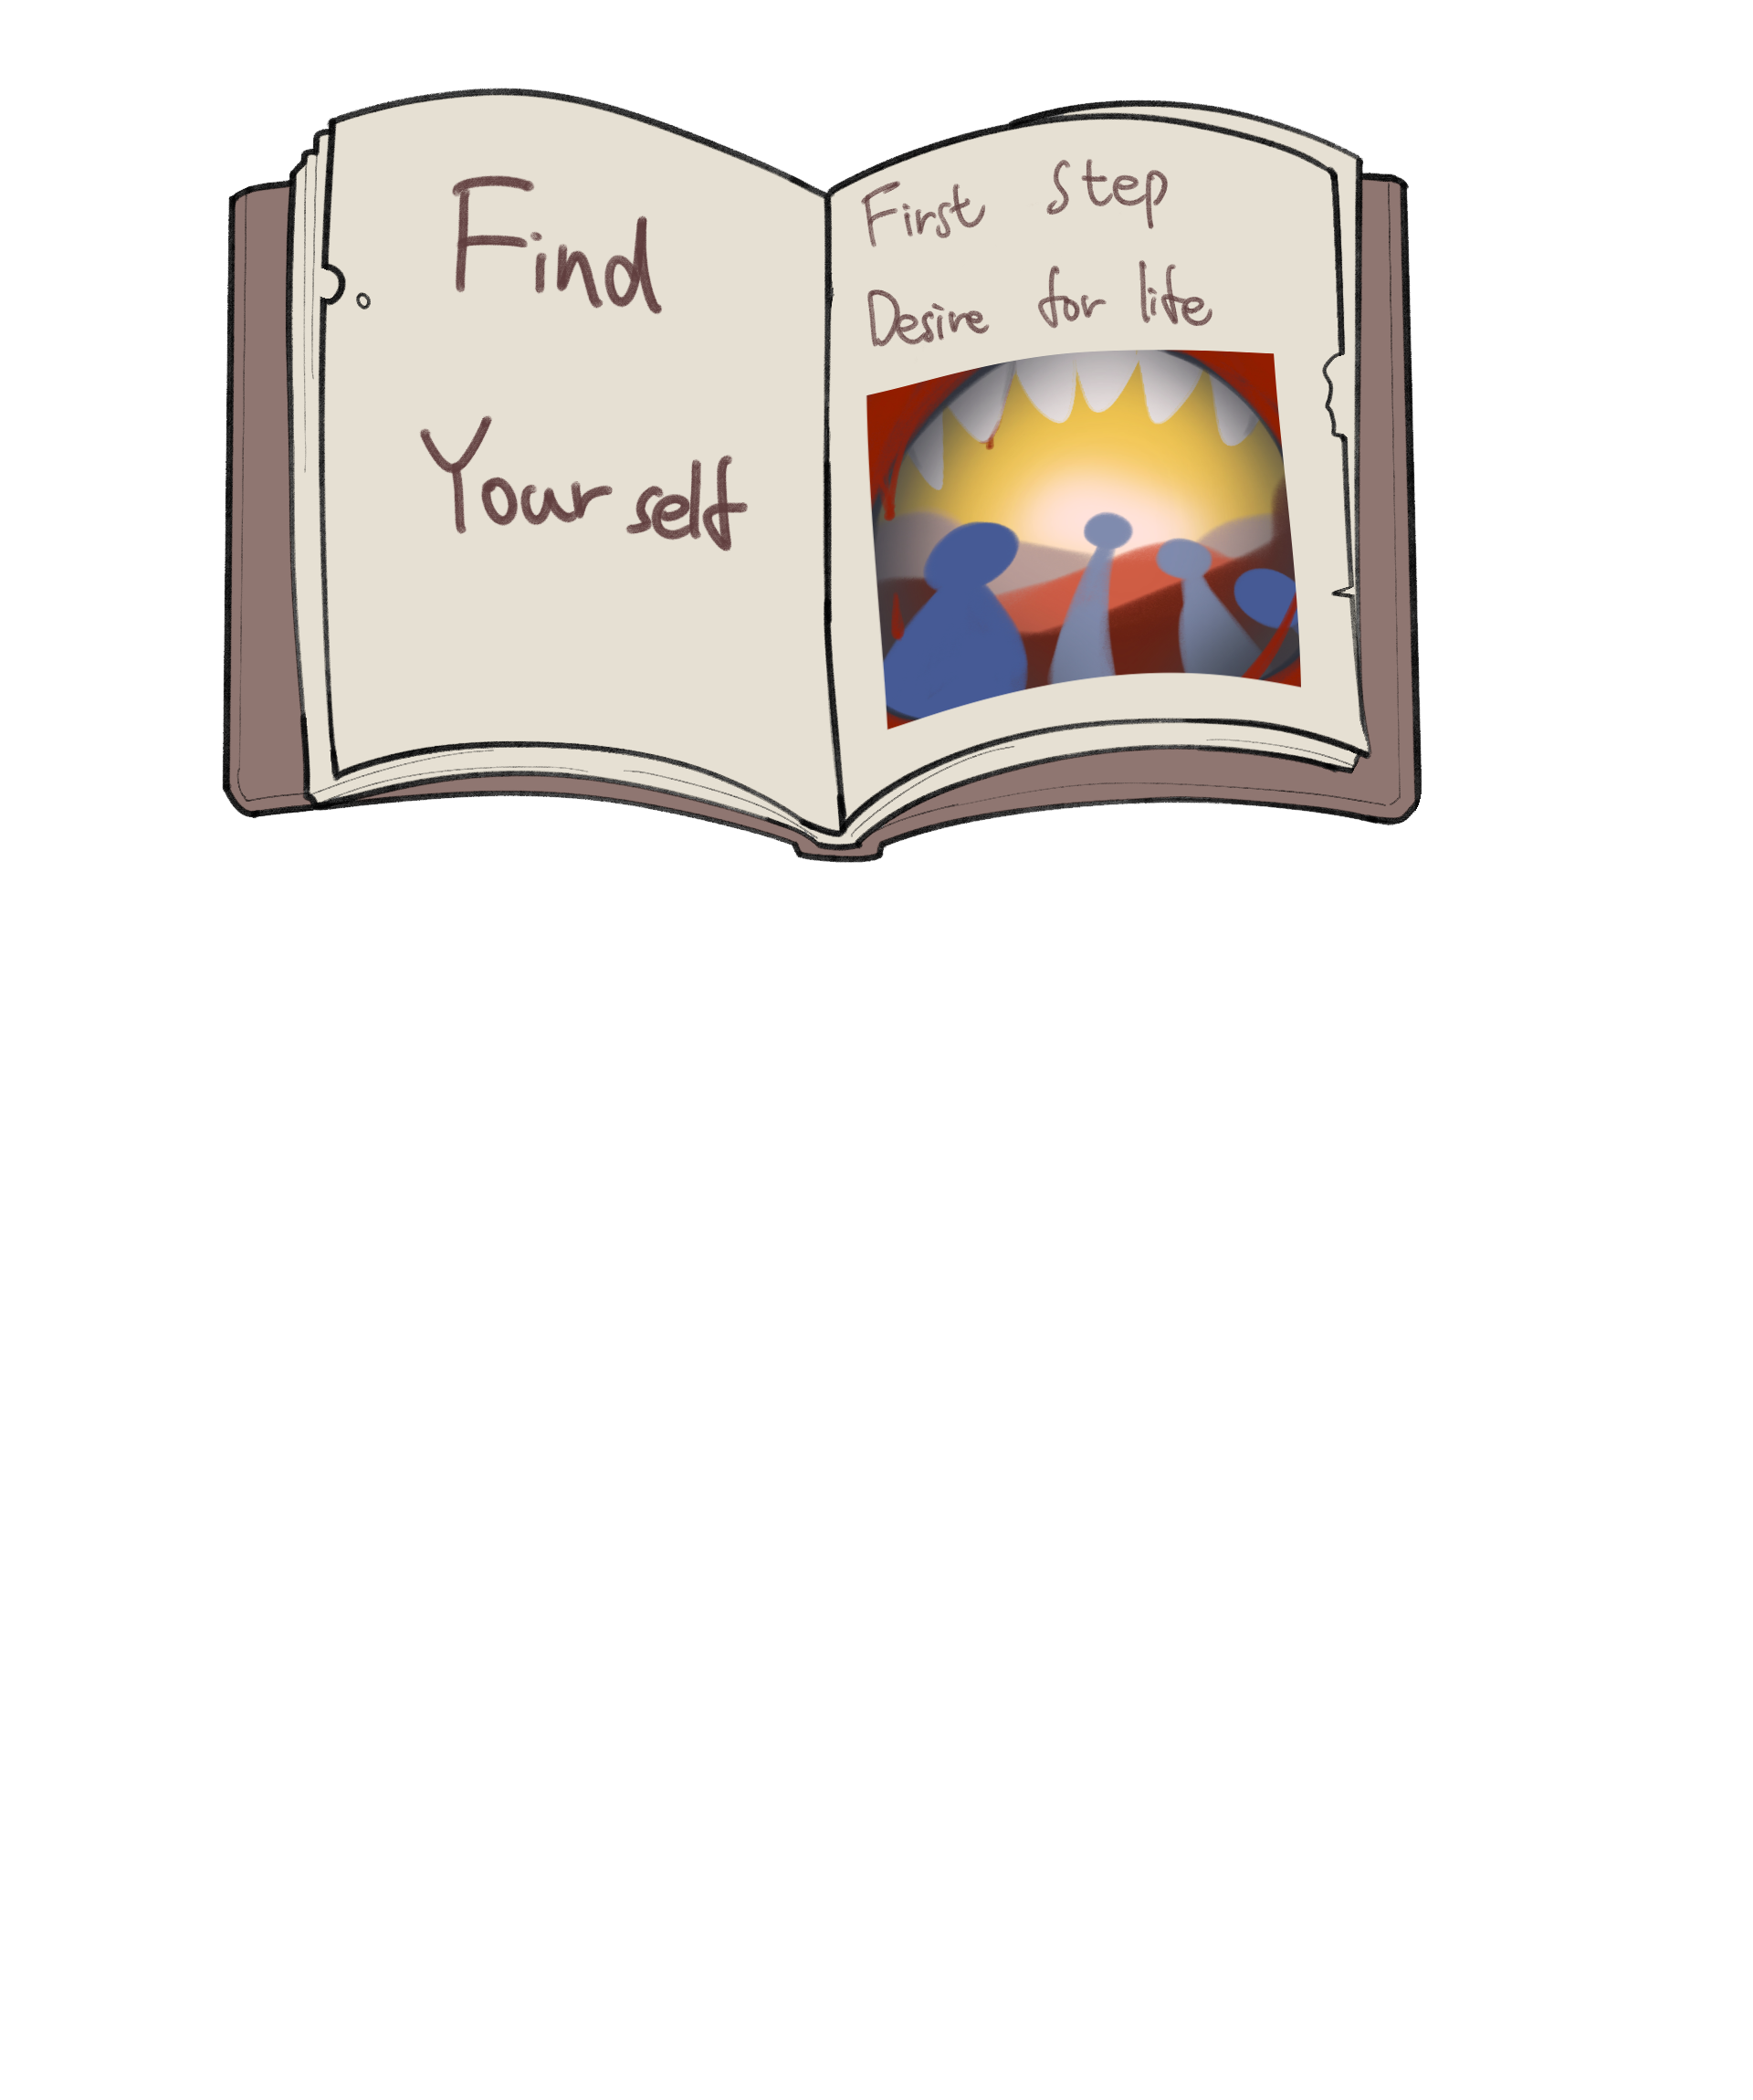 Find
Your self
First Step
Desire for life